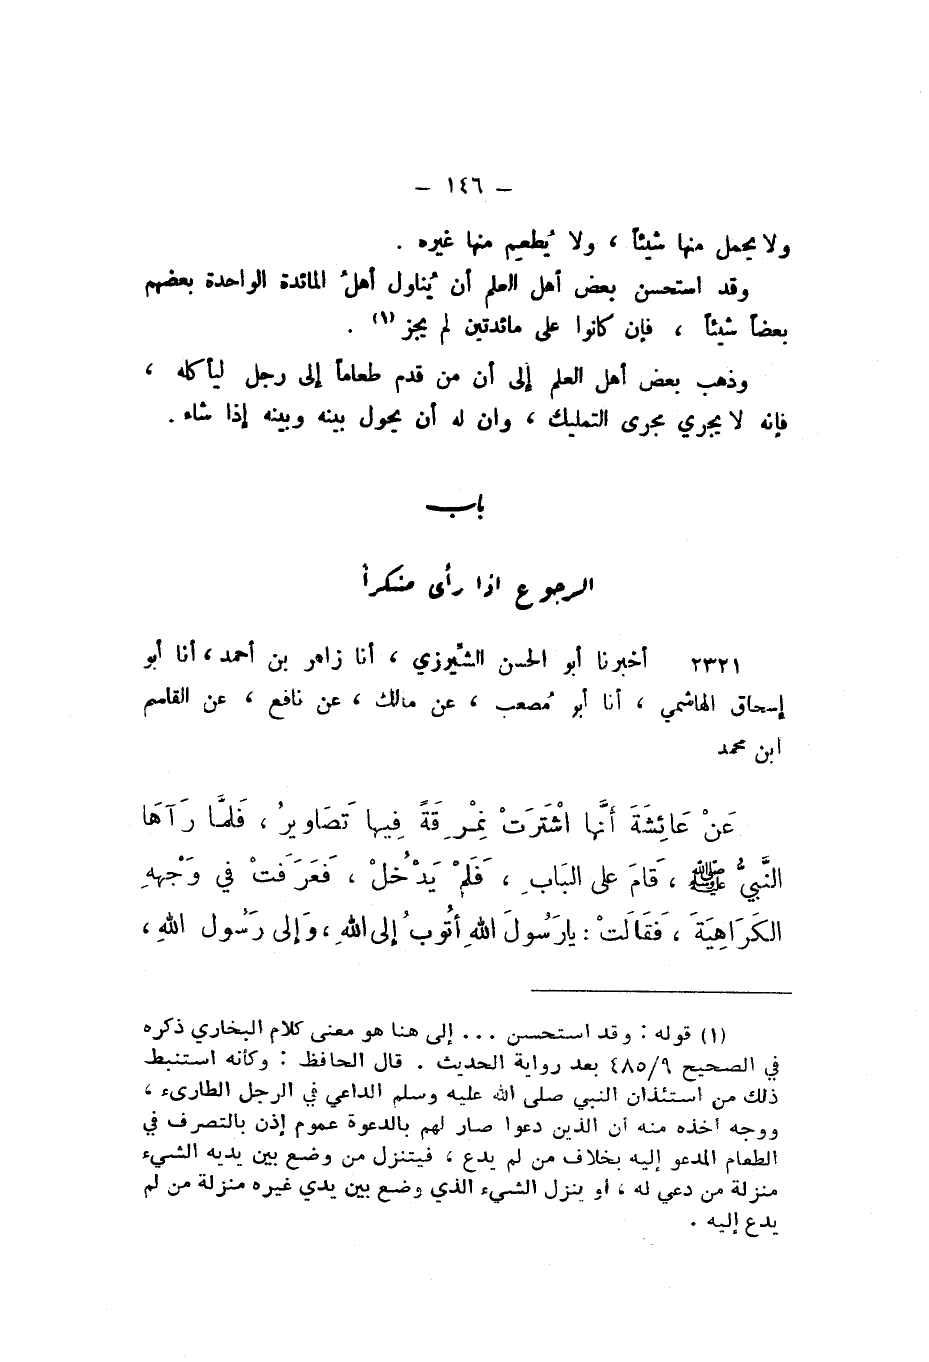 – ١٤٦ –
ولا يحمل منها شيئاً ، ولا يُطعِم منها غيره .
وقد استحسن بعض أهل العلم أن يُناول أهلُ المائدة الواحدة بعضهم
بعضاً شيئاً ، فإن كانوا على مائدتين لم يجز (١) .
وذهب بعض أهل العلم إلى أن من قدم طعاماً إلى رجل ليأكله ،
فإنه لا يجري مجرى التمليك ، وان له أن يحول بينه وبينه إذا شاء .
باب
الرجوع اذا رأى منكراً
٢٣٢١ أخبرنا أبو الحسن الشِّيرزي ، أنا زاهر بن أحمد ، أنا أبو
إسحاق الهاشمي ، أنا أبو مُصعب ، عن مالك ، عن نافع ، عن القاسم
ابن محمد
عَنْ عَائِشَةَ أَنَّها اشْتَرَتْ نِمْرِقَةً فِيها تَصَاوِيرُ ، فَلمَّا رَآهَا
النَّبِيُّ ﷺ ، قَامَ على البَابِ ، فَلَمْ يَدْخُلْ ، فَعَرَفَتْ في وَجْهِهِ
الكَرَاهِيَةَ ، فَقَالَتْ : يارَسُولَ اللهِ أَتُوبُ إلى اللهِ ، وَإلى رَسُول اللهِ ،
(١) قوله : وقد استحسن ... إلى هنا هو معنى كلام البخاري ذكره
في الصحيح ٤٨٥/٩ بعد رواية الحديث . قال الحافظ : وكأنه استنبط
ذلك من استئذان النبي صلى الله عليه وسلم الداعي في الرجل الطارىء ،
ووجه أخذه منه أن الذين دعوا صار لهم بالدعوة عموم إذن بالتصرف في
الطعام المدعو إليه بخلاف من لم يدع ، فيتنزل من وضع بين يديه الشيء
منزلة من دعي له ، أو ينزل الشيء الذي وضع بين يدي غيره منزلة من لم
يدع إليه .